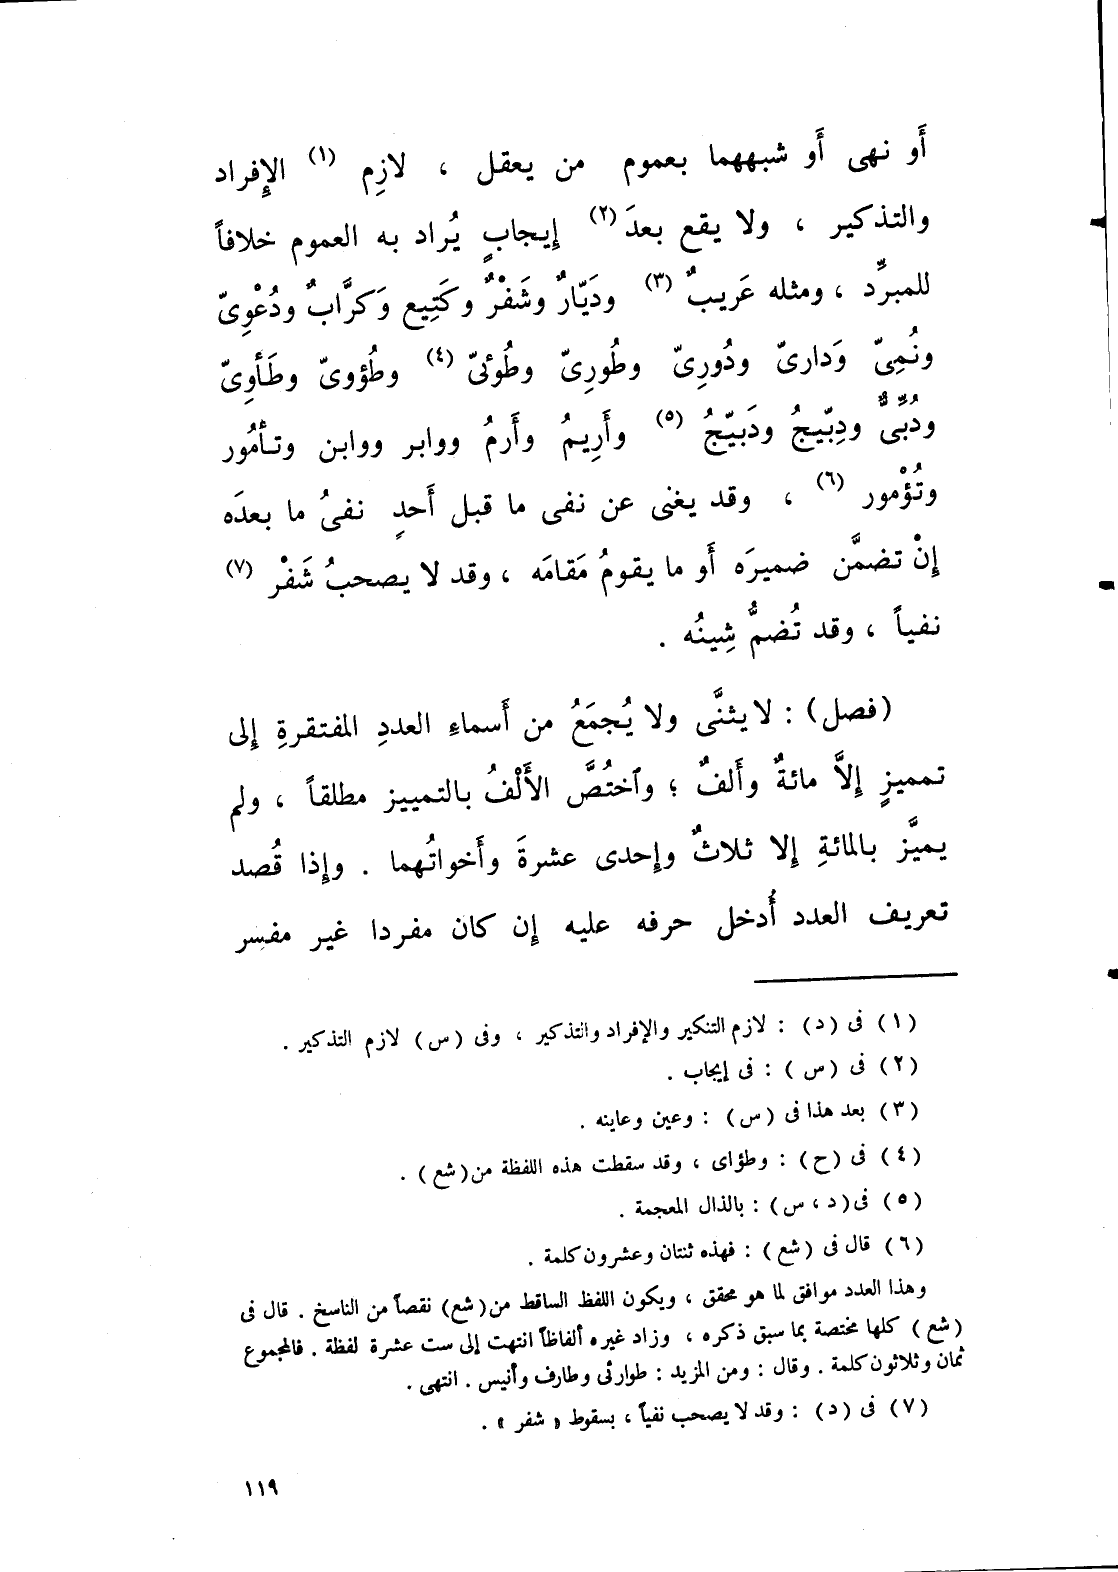 أَو نهى أَو شبههما بعموم من يعقل ، لازِم (١) الإِفراد
والتذكير ، ولا يقع بعدَ (٢) إِيجابٍ يُراد به العموم خلافاً
للمبرِّد ، ومثله عَريبٌ (٣) ودَيّارٌ وشَفْرٌ وكَتِيع وَكرَّابٌ ودُعْوِىّ
ونُمِىّ وَدارىّ ودُورِىّ وطُورِىّ وطُوئىّ (٤) وطُؤوىّ وطَأوِىّ
ودُبِّىٌّ ودِبّيجُ ودَبيّجُ (٥) وأَرِيمُ وأَرمُ ووابر ووابن وتأمُور
وتُؤْمور (٦) ، وقد يغنى عن نفى ما قبل أَحدٍ نفىُ ما بعدَه
إِنْ تضمَّن ضميرَه أَو ما يقومُ مَقامَه ، وقد لا يصحبُ شَفْر (٧)
نفياً ، وقد تُضمُّ شِينُه .
(فصل) : لا يثنَّى ولا يُجمَعُ من أَسماءِ العددِ المفتقرةِ إِلى
تمميزٍ إِلاَّ مائةٌ وأَلفٌ ؛ وٱختُصَّ الأَلْفُ بالتمييز مطلقاً ، ولم
يميَّز بالمائةِ إلا ثلاثٌ وإِحدى عشرةَ وأَخواتُهما . وإِذا قُصد
تعريف العدد أُدخل حرفه عليه إِن كان مفردا غير مفسر
(١) فى (د) : لازم التنكير والإفراد والتذكير ، وفى (س) لازم التذكير .
(٢) فى (س) : فى إيجاب .
(٣) بعد هذا فى (س) : وعين وعاينه .
(٤) فى (ح) : وطؤاى ، وقد سقطت هذه اللفظة من (شع) .
(٥) فى (د ، س) : بالذال المعجمة .
(٦) قال فى (شع) : فهذه ثنتان وعشرون كلمة .
وهذا العدد موافق لما هو محقق ، ويكون اللفظ الساقط من (شع) نقصاً من الناسخ . قال فى
(شع) كلها مختصة بما سبق ذكره ، وزاد غيره ألفاظاً انتهت إلى ست عشرة لفظة . فالمجموع
ثمان وثلاثون كلمة . وقال : ومن المزيد : طوارئى وطارف وأنيس . انتهى .
(٧) فى (د) : وقد لا يصحب نفياً ، بسقوط « شفر » .
١١٩